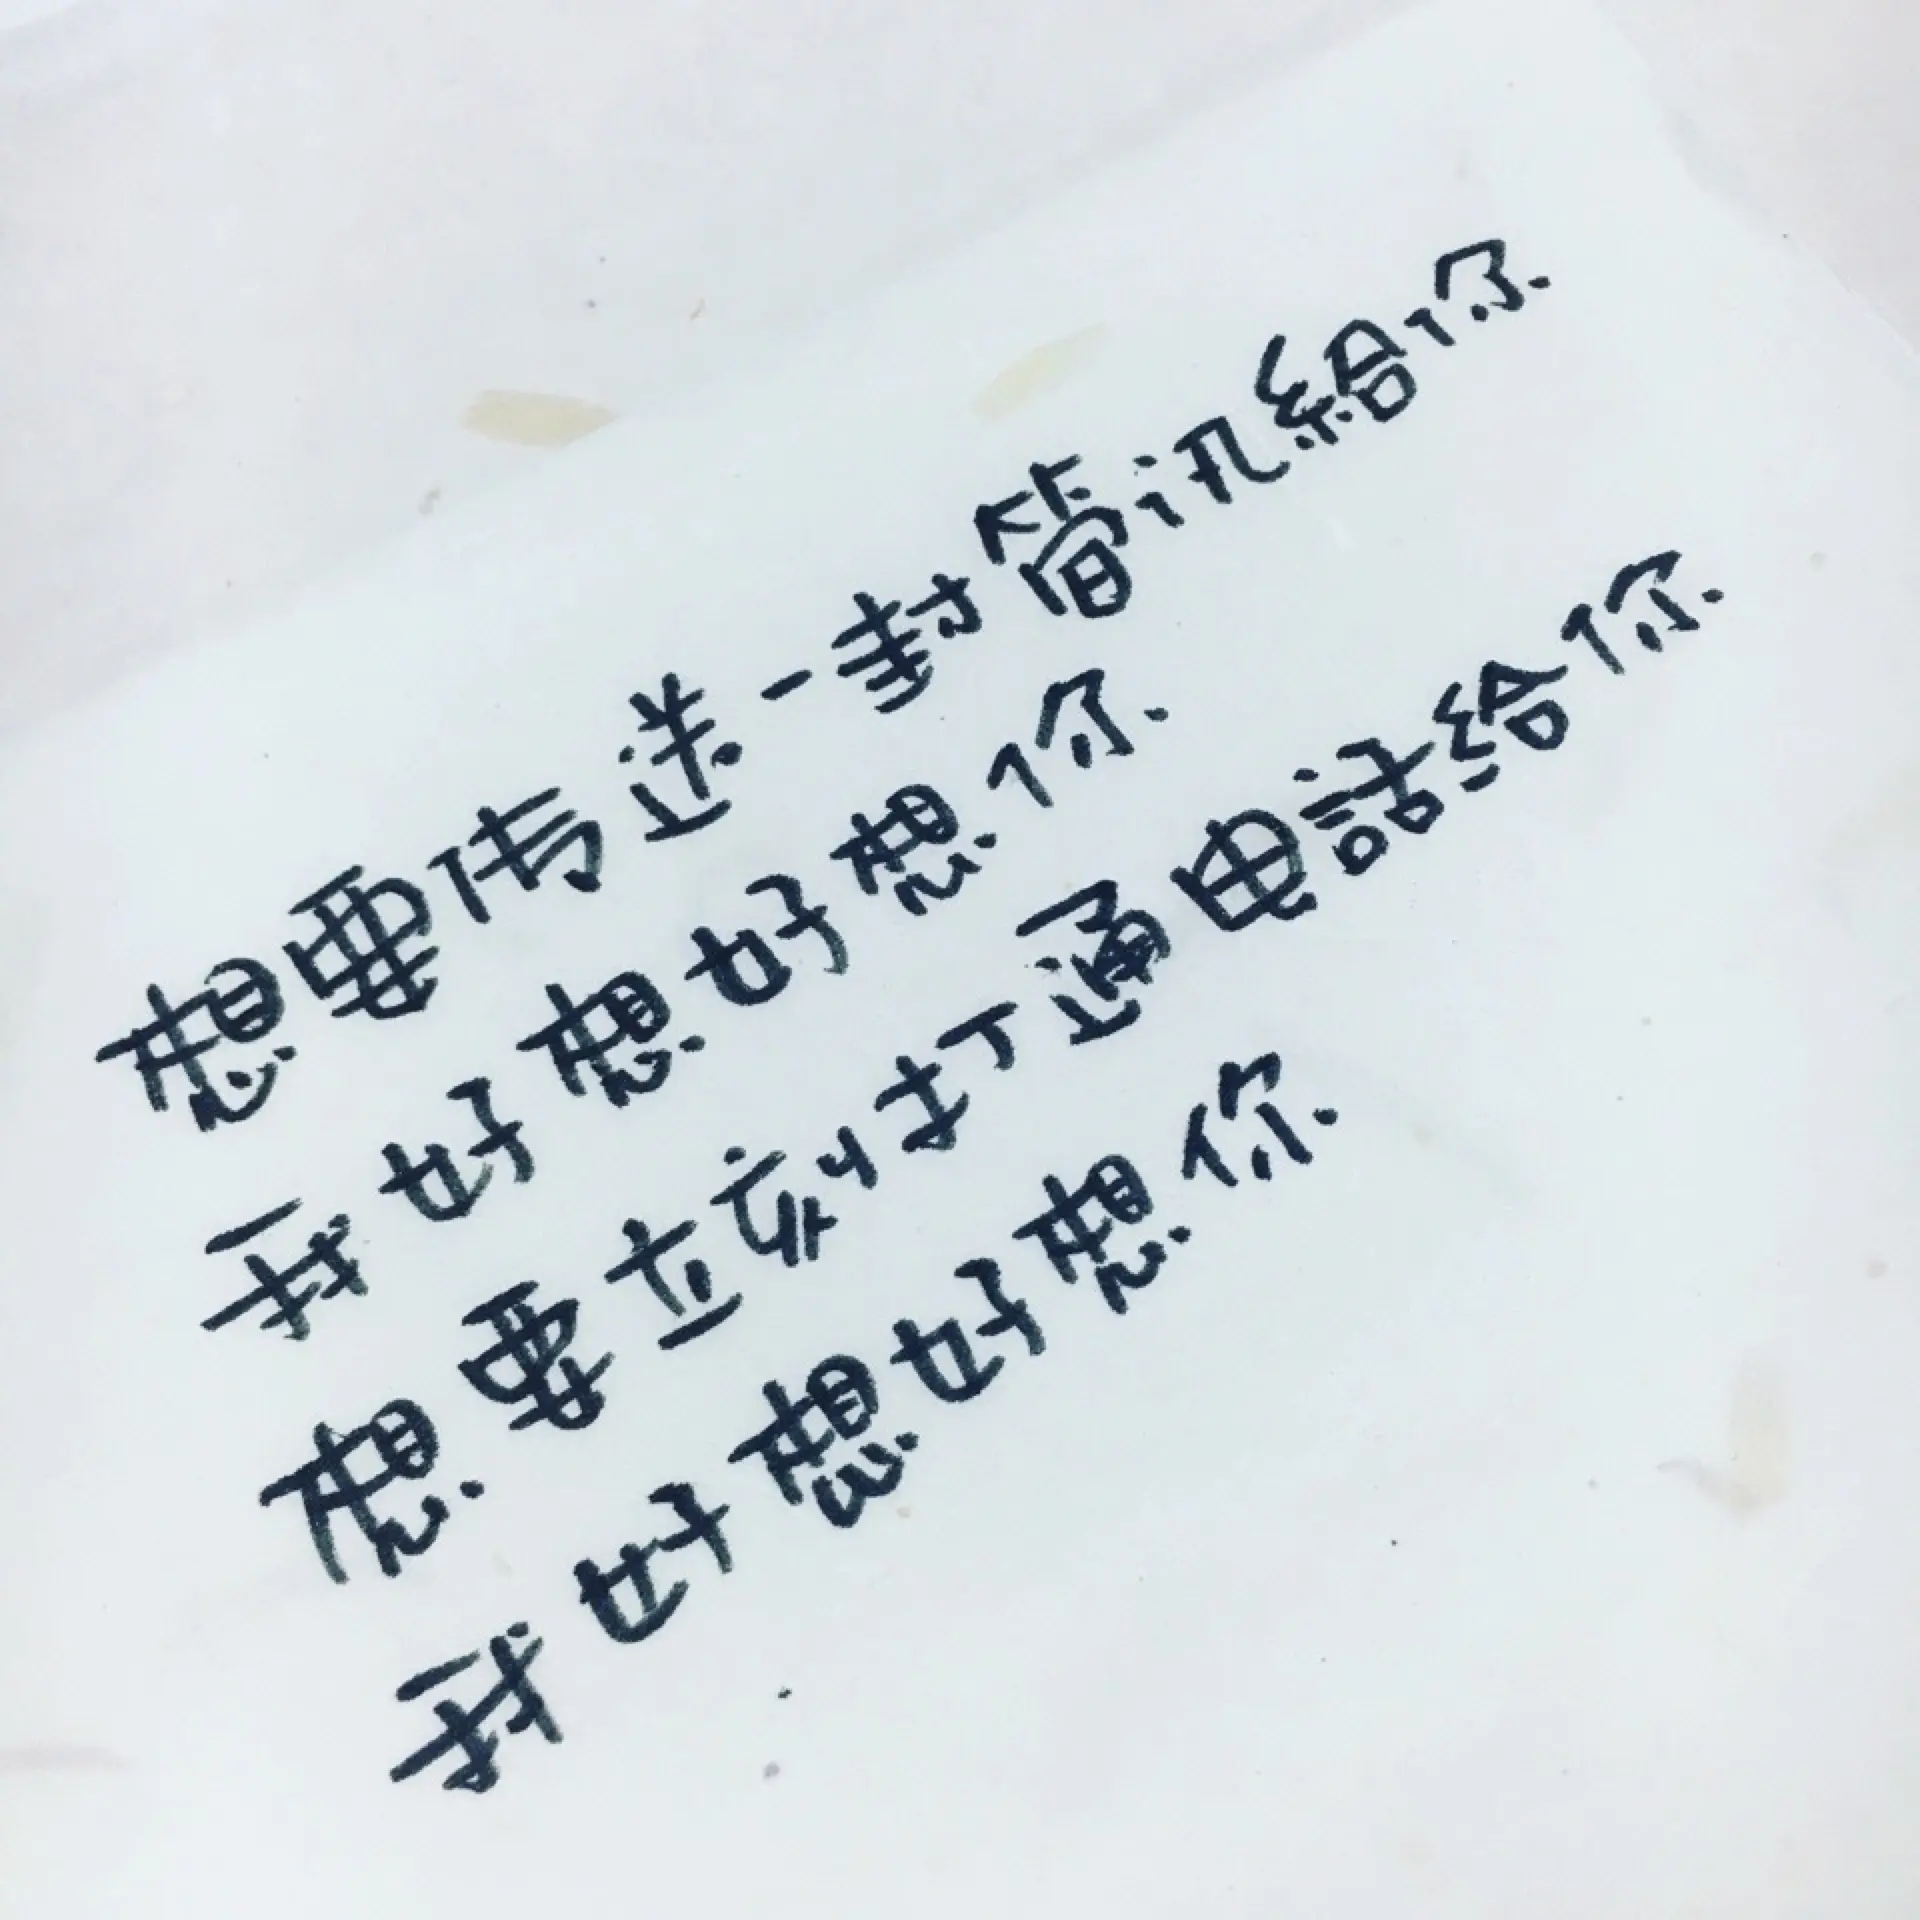 想要传送一封简讯給你
我好想好想你
想要立刻打通电話给你
我好想好想你